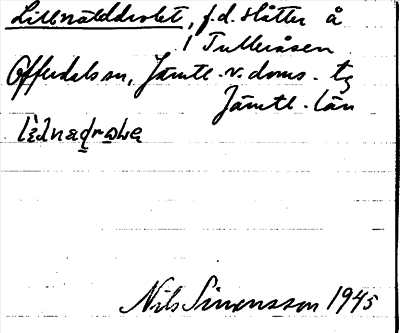 Lillnälddrolet, f.d. slåtter å
i Tulleråsen
Offerdals sn, Jämtl. v. doms. tg
Jämtl. län
Nils Simonsson 1945